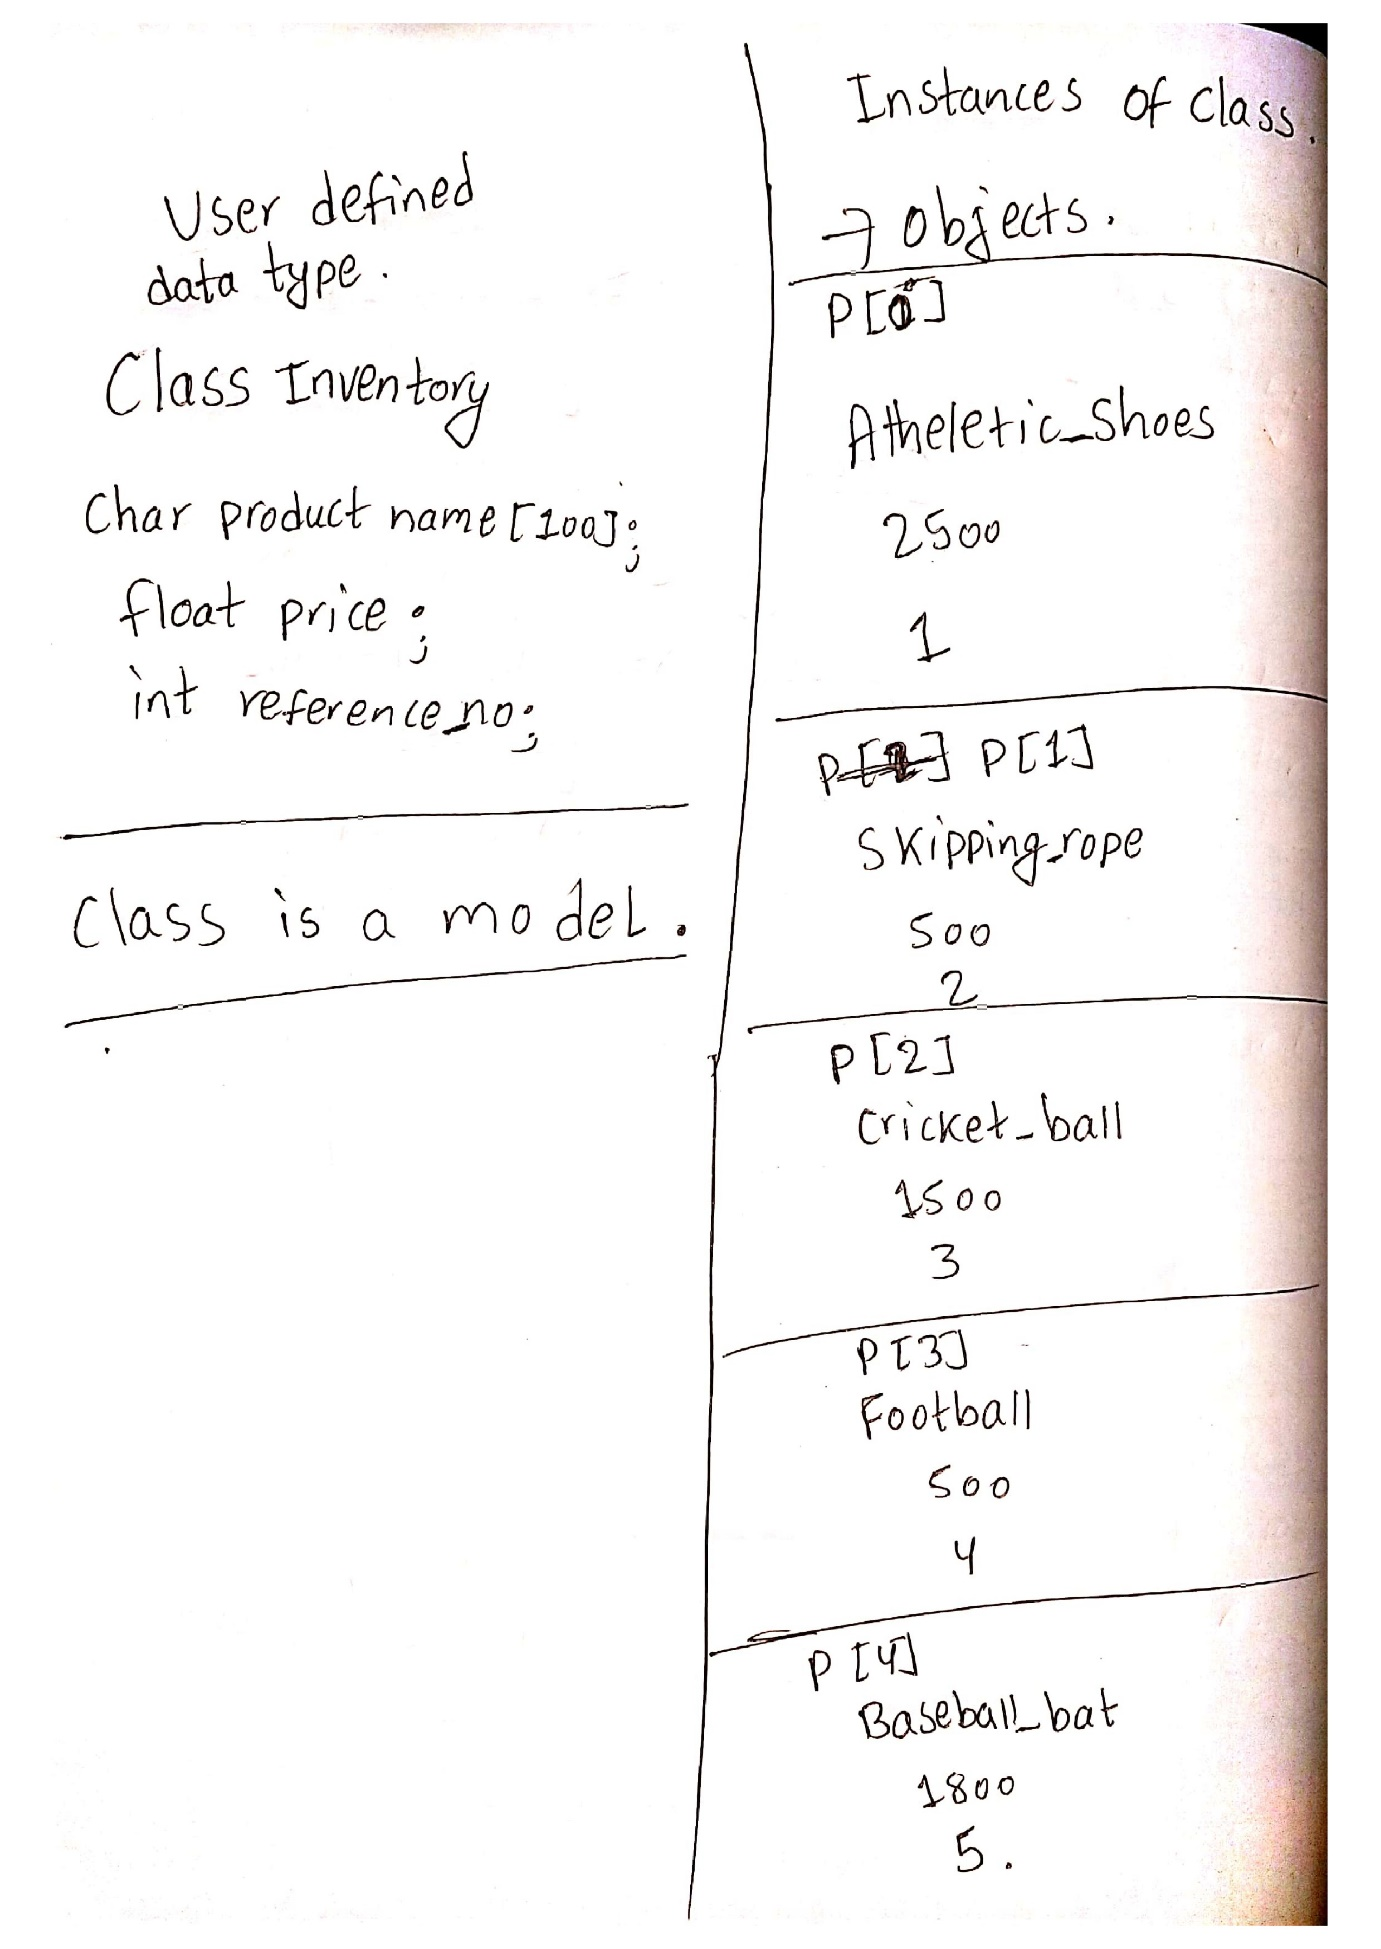 User defined
data type.
Class Inventory
Char product name[100];
float price;
int reference_no;
Class is a model.
Instances of class.
→ objects.
P[0]
Atheletic_Shoes
2500
1
P[1]
Skipping_rope
500
2
P[2]
Cricket_ball
1500
3
P[3]
Football
500
4
P[4]
Baseball_bat
1800
5.